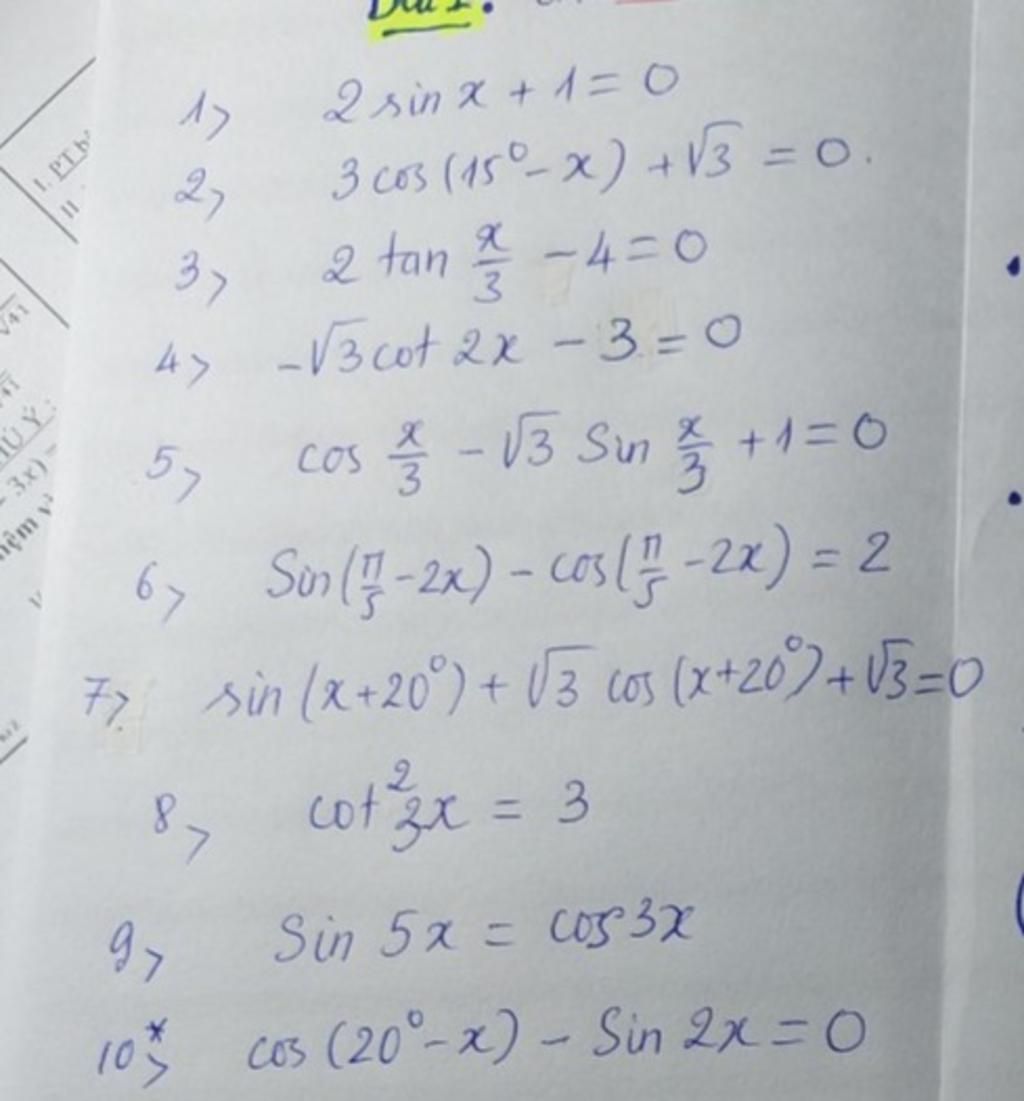 Bài 1:
1, 2 sin x + 1 = 0
2, 3 cos (15° - x) + √3 = 0.
3, 2 tan x/3 - 4 = 0
4, -√3 cot 2x - 3 = 0
5, cos x/3 - √3 Sin x/3 + 1 = 0
6, Sin(π/5 - 2x) - cos(π/5 - 2x) = 2
7, sin (x+20°) + √3 cos (x+20°) + √3 = 0
8, cot² 3x = 3
9, Sin 5x = cos 3x
10*, cos (20° - x) - Sin 2x = 0
I. PT
II
√41
Ú Ý:
3x) =